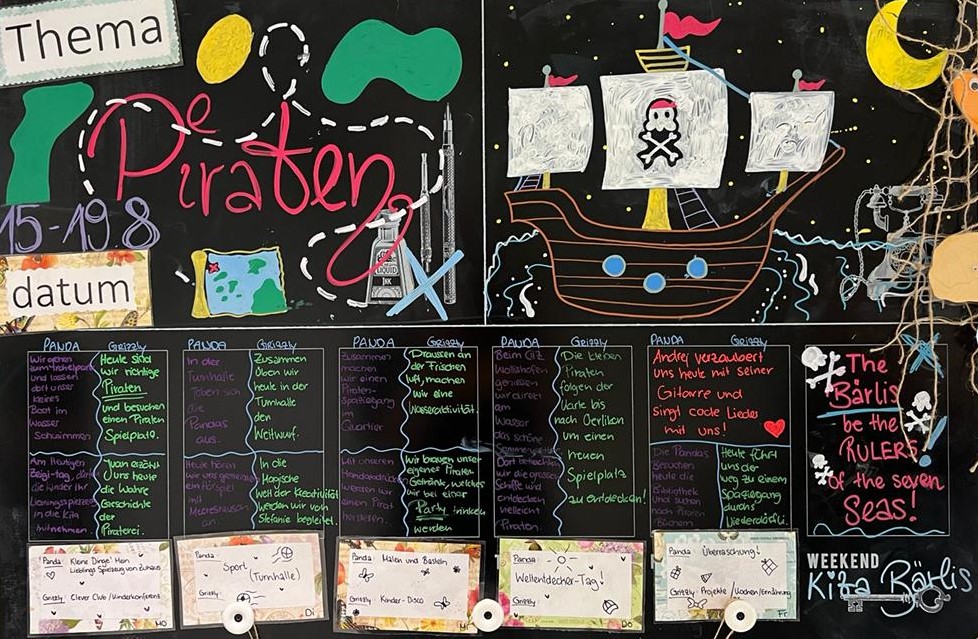 Thema
Die
Piraten
15-19.8
datum
LIQUID
INK
PANDA
Grizzly
Wir gehen
und lassen
dort unser
kleines
Boot im
Wasser
Schwimmen
Heute sind
wir richtige
Piraten
und besuchen
einen Piraten
Spielplatz.
Am Heutigen
Zeigi-tag, dürfen
die Kinder ihr
Lieblingsspielzeug
in die Kita
mitnehmen
Juan erzählt
uns heute
die Wahre
Geschichte
der
Piraterei.
PANDA
Grizzly
In der
Turnhalle
toben sich
die
Pandas
aus.
Zusammen
Üben wir
heute in der
Turnhalle
den
Weitwurf.
Heute hören
wir uns gemeinsam
ein Hörspiel
mit
Meeresrauschen
an.
In die
Magische
Welt der Kreativität
werden wir von
Stefanie begleitet.
PANDA
Grizzly
Zusammen
machen
wir einen
Piraten-
Spaziergang
im
Quartier
Draussen an
der Frischen
Luft, machen
wir eine
Wasseraktivität.
Mit unseren
werden wir
einen Pirat
Wir brauen unser
eigenes Piraten-
Getränk, welches
wir bei einer
Party trinken
werden
PANDA
Grizzly
Beim GZ
Wollishofen
geniessen
wir direkt
am
Wasser
das schöne
Sommerwetter.
Dort betrachten
wir die grossen
Schiffe. Wir
entdecken
vielleicht
Piraten.
Die kleinen
Piraten
folgen der
Karte bis
nach Oerlikon
um einen
neuen
Spielplatz
zu entdecken!
PANDA
Grizzly
Andrej verzaubert
uns heute mit seiner
Gitarre und
singt coole Lieder
mit uns!
Die Pandas
Besuchen
heute die
Bibliothek
und suchen
nach Piraten
Büchern
Heute führt
uns der
weg zu einem
Spaziergang
durchs
Niederdörfli.
The
Bärlis
be the
RULERS
of the seven
Seas!
WEEKEND
Kita Bärlis
Panda: Kleine Dinge! Mein
Lieblings Spielzeug von Zuhaus
Grizzly: Clever Club / Kinderkonferenz
MO
Panda:
Sport
(Turnhalle)
Grizzly:
Di
Panda: Malen und Basteln
Grizzly: Kinder-Disco
Mi
Panda:
Weltentdecher-Tag!
Grizzly:
Do
Panda: Überraschung!
Grizzly: Projekte / Kochen/Ernährung
Fr